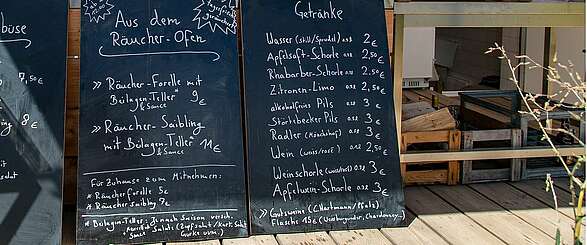 büse
7,50€
8€
Aus dem
Räucher-Ofen
» Räucher-Forelle mit
Beilagen-Teller*
& Sauce 9€
» Räucher-Saibling
mit Beilagen-Teller* 11€
& Sauce
Für Zuhause zum Mitnehmen:
* Räucherforelle 5€
* Räuchersaibling 7€
* Beilagen-Teller: Je nach Saison versch.
Salate (Kart. Salat
Gurke usw.)
Getränke
Wasser (still/Sprudel) 0,2 2€
Apfelsaft-Schorle 0,2 2,50
Rhabarber-Schorle 0,2 2,50
Zitronen-Limo 0,2 2,50
alkoholfreies Pils 3€
Störtebecker Pils 3€
Radler 3€
Wein (weiss/rosé) 2,50
Weinschorle (weiss/rosé) 3€
Apfelwein-Schorle 3€
» Gutsweine (C. Hartmann/Pfalz)
Flasche 15€ (Weissburgunder, Chardonnay...)